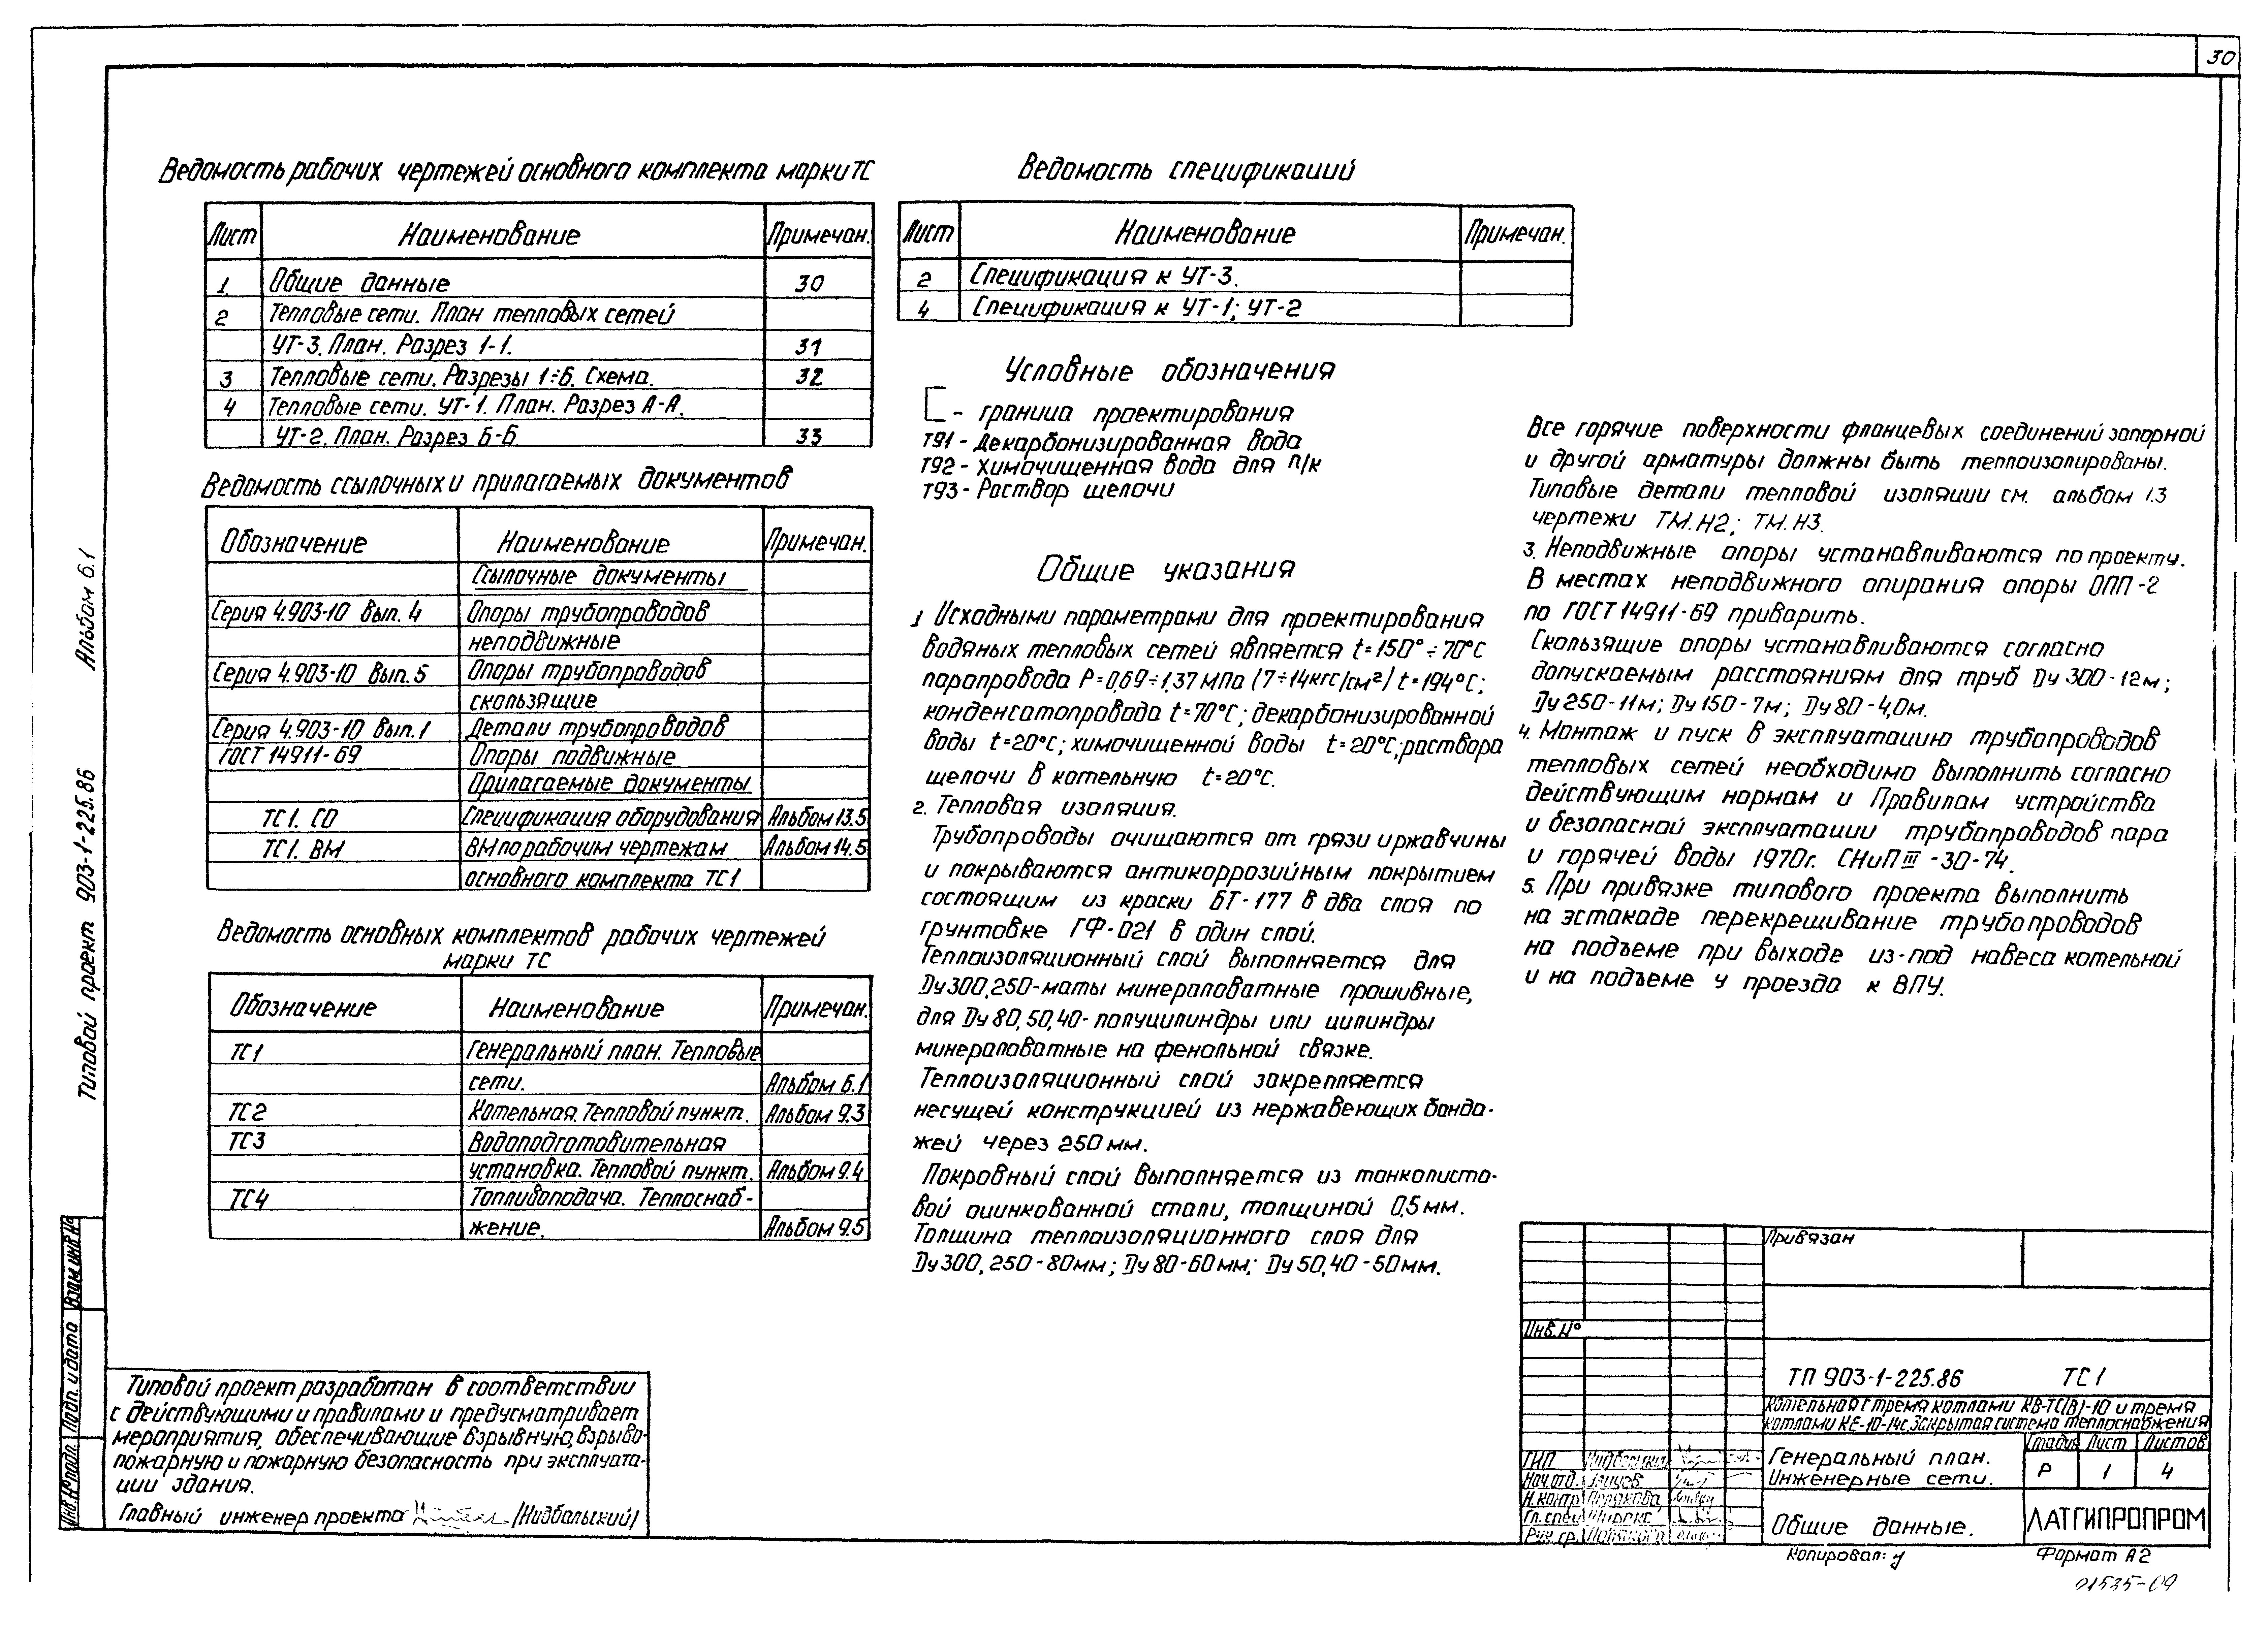 30
Ведомость рабочих чертежей основного комплекта марки ТС
Лист Наименование Примечан.
1. Общие данные 30
2 Тепловые сети. План тепловых сетей
УТ-3. План. Разрез 1-1. 31
3 Тепловые сети. Разрезы 1÷6. Схема. 32
4 Тепловые сети. УТ-1. План. Разрез А-А.
УТ-2. План. Разрез Б-Б 33
Ведомость ссылочных и прилагаемых документов
Обозначение Наименование Примечан.
Ссылочные документы
Серия 4.903-10 Вып. 4 Опоры трубопроводов
неподвижные
Серия 4.903-10 Вып. 5 Опоры трубопроводов
скользящие
Серия 4.903-10 Вып. 1 Детали трубопроводов
ГОСТ 14911-69 Опоры подвижные
Прилагаемые документы
ТС1. СО Спецификация оборудования Альбом 13.5
ТС1. ВМ ВМ по рабочим чертежам Альбом 14.5
основного комплекта ТС1
Ведомость основных комплектов рабочих чертежей
марки ТС
Обозначение Наименование Примечан.
ТС1 Генеральный план. Тепловые
сети. Альбом 6.1
ТС2 Котельная. Тепловой пункт. Альбом 9.3
ТС3 Водоподготовительная
установка. Тепловой пункт. Альбом 9.4
ТС4 Топливоподача. Теплоснаб-
жение. Альбом 9.5
Ведомость спецификаций
Лист Наименование Примечан.
2 Спецификация к УТ-3.
4 Спецификация к УТ-1; УТ-2
Условные обозначения
- граница проектирования
Т91 - Декарбонизированная вода
Т92 - Химочищенная вода для п/к
Т93 - Раствор щелочи
Общие указания
1 Исходными параметрами для проектирования
водяных тепловых сетей является t=150°÷70°С
паропровода Р=0,69÷1,37 МПа (7÷14кгс/см²) t=194°С;
конденсатопровода t=70°С; декарбонизированной
воды t=20°С; химочищенной воды t=20°С; раствора
щелочи в котельную t=20°С.
2. Тепловая изоляция.
Трубопроводы очищаются от грязи и ржавчины
и покрываются антикоррозийным покрытием
состоящим из краски БТ-177 в два слоя по
грунтовке ГФ-021 в один слой.
Теплоизоляционный слой выполняется для
Ду 300,250-маты минераловатные прошивные,
для Ду 80,50,40-полуцилиндры или цилиндры
минераловатные на фенольной связке.
Теплоизоляционный слой закрепляется
несущей конструкцией из нержавеющих банда-
жей через 250 мм.
Покровный слой выполняется из тонколисто-
вой оцинкованной стали, толщиной 0,5 мм.
Толщина теплоизоляционного слоя для
Ду 300, 250-80мм; Ду 80-60мм; Ду 50,40-50мм.
Все горячие поверхности фланцевых соединений запорной
и другой арматуры должны быть теплоизолированы.
Типовые детали тепловой изоляции см. альбом 1.3
чертежи ТМ.Н2; ТМ.Н3.
3. Неподвижные опоры устанавливаются по проекту.
В местах неподвижного опирания опоры ОПП-2
по ГОСТ 14911-69 приварить.
Скользящие опоры устанавливаются согласно
допускаемым расстояниям для труб Ду 300-12м;
Ду 250-11м; Ду 150-7м; Ду 80-4,0м.
4. Монтаж и пуск в эксплуатацию трубопроводов
тепловых сетей необходимо выполнить согласно
действующим нормам и Правилам устройства
и безопасной эксплуатации трубопроводов пара
и горячей воды 1970г. СНиП III-30-74.
5. При привязке типового проекта выполнить
на эстакаде перекрещивание трубопроводов
на подъеме при выходе из-под навеса котельной
и на подъеме у проезда к ВПУ.
Альбом 6.1
Типовой проект 903-1-225.86
Взам инв №
Подп. и дата
Инв. № подл.
Типовой проект разработан в соответствии
с действующими и правилами и предусматривает
мероприятия, обеспечивающие взрывную, взрыво-
пожарную и пожарную безопасность при эксплуата-
ции здания.
Главный инженер проекта /Нидбальский/
Привязан
Инв. №
ТП 903-1-225.86 ТС1
Котельная с тремя котлами КВ-ТС(В)-10 и тремя
котлами КЕ-10-14с. Закрытая система теплоснабжения
ГИП
Нач.отд.
Н.контр
Гл. спец
Рук. гр.
Генеральный план.
Инженерные сети.
Стадия Лист Листов
Р 1 4
Общие данные.
ЛАТГИПРОПРОМ
Копировал:
Формат А2